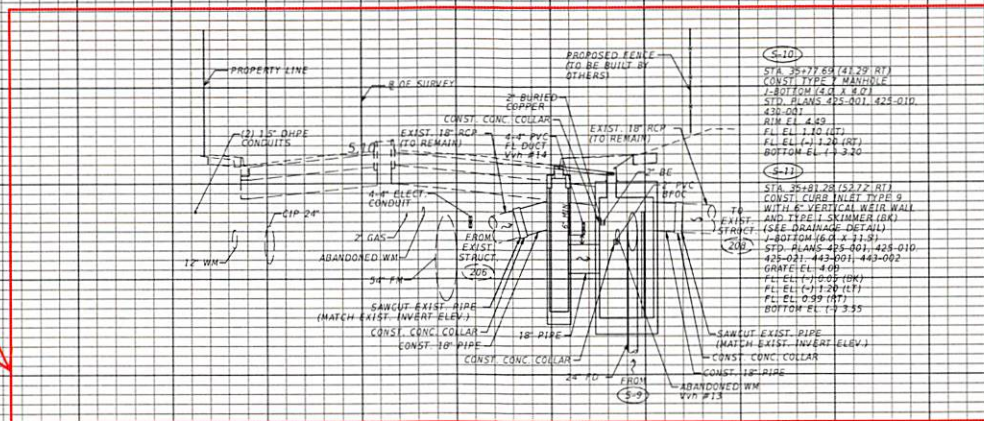 PROPERTY LINE
℄ OF SURVEY
PROPOSED FENCE
(TO BE BUILT BY
OTHERS)
2" BURIED
COPPER
CONST. CONC. COLLAR
EXIST. 18" RCP
(TO REMAIN)
4-4" PVC
FL DUCT
Vvh #14
EXIST. 18" RCP
(TO REMAIN)
(2) 1.5" DHPE
CONDUITS
5.10
2" BE
PVC
BFOC
4-4" ELECT.
CONDUIT
6" MIN
CIP 24"
12" WM
2" GAS
ABANDONED WM
54" FM
FROM
EXIST.
STRUCT.
206
TO
EXIST.
STRUCT.
208
SAWCUT EXIST. PIPE
(MATCH EXIST. INVERT ELEV.)
CONST. CONC. COLLAR
CONST. 18" PIPE
18" PIPE
CONST. CONC. COLLAR
24" FD
FROM
S-9
SAWCUT EXIST. PIPE
(MATCH EXIST. INVERT ELEV.)
CONST. CONC. COLLAR
CONST. 18" PIPE
ABANDONED WM
Vvh #13
S-10
STA. 35+77.69 (41.29' RT)
CONST. TYPE 7 MANHOLE
J-BOTTOM (4.0' X 4.0')
STD. PLANS 425-001, 425-010,
430-001
RIM EL. 4.49
FL. EL. 1.10 (LT)
FL. EL. (-) 1.20 (RT)
BOTTOM EL. (-) 3.20
S-11
STA. 35+81.28 (52.72' RT)
CONST. CURB INLET TYPE 9
WITH 6" VERTICAL WEIR WALL
AND TYPE 1 SKIMMER (BK)
(SEE DRAINAGE DETAIL)
J-BOTTOM (6.0' X 11.5')
STD. PLANS 425-001, 425-010,
425-021, 443-001, 443-002
GRATE EL. 4.09
FL. EL. (-) 0.05 (BK)
FL. EL. (-) 1.20 (LT)
FL. EL. 0.99 (RT)
BOTTOM EL. (-) 3.55